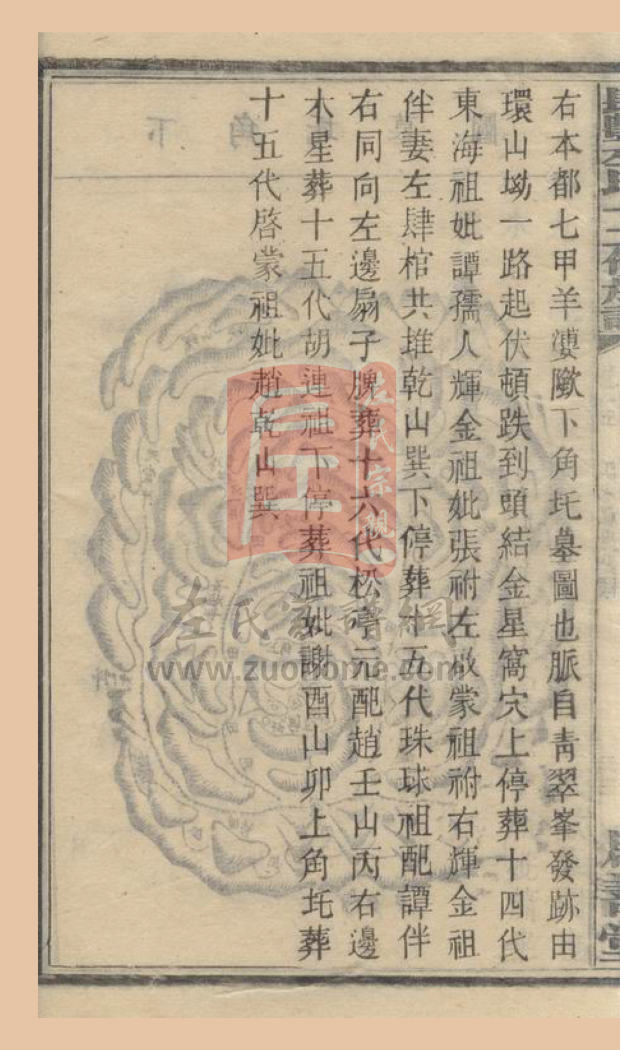 右本都七甲羊㵎歟下角圫墓圖也脈自靑翠峯發跡由
環山坳一路起伏頓跌到頭結金星窩穴上停葬十四代
東海祖妣譚孺人輝金祖妣張祔左啟蒙祖祔右輝金祖
伴妻左肆棺共堆乾山巽下停葬十五代珠球祖配譚伴
右同向左邊扇子脾葬十六代松亭元配趙壬山丙右邊
木星葬十五代胡連祖下停葬祖妣謝酉山卯上角圫葬
十五代啓蒙祖妣趙乾山巽
左氏宗親
左氏家譜網
www.zuohome.com